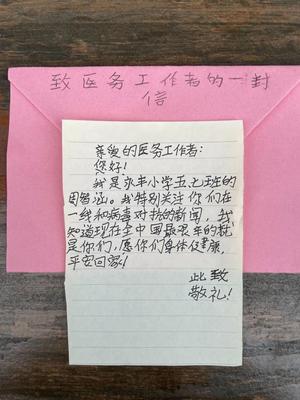 致医务工作者的一封
信
亲爱的医务工作者:
您好!
我是亦丰小学五、七班的
周智涵。我特别关注你们在
一线和病毒对抗的新闻,我
知道现在全中国最艰辛的就
是你们,愿你们身体健康,
平安回家!
此致
敬礼!